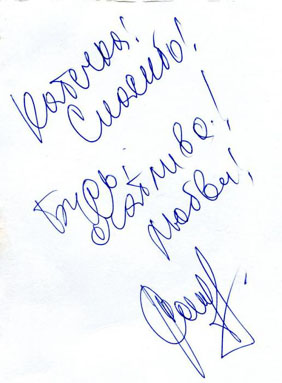 Катечка!
Спасибо!
Будь
счастлива!
Любви!